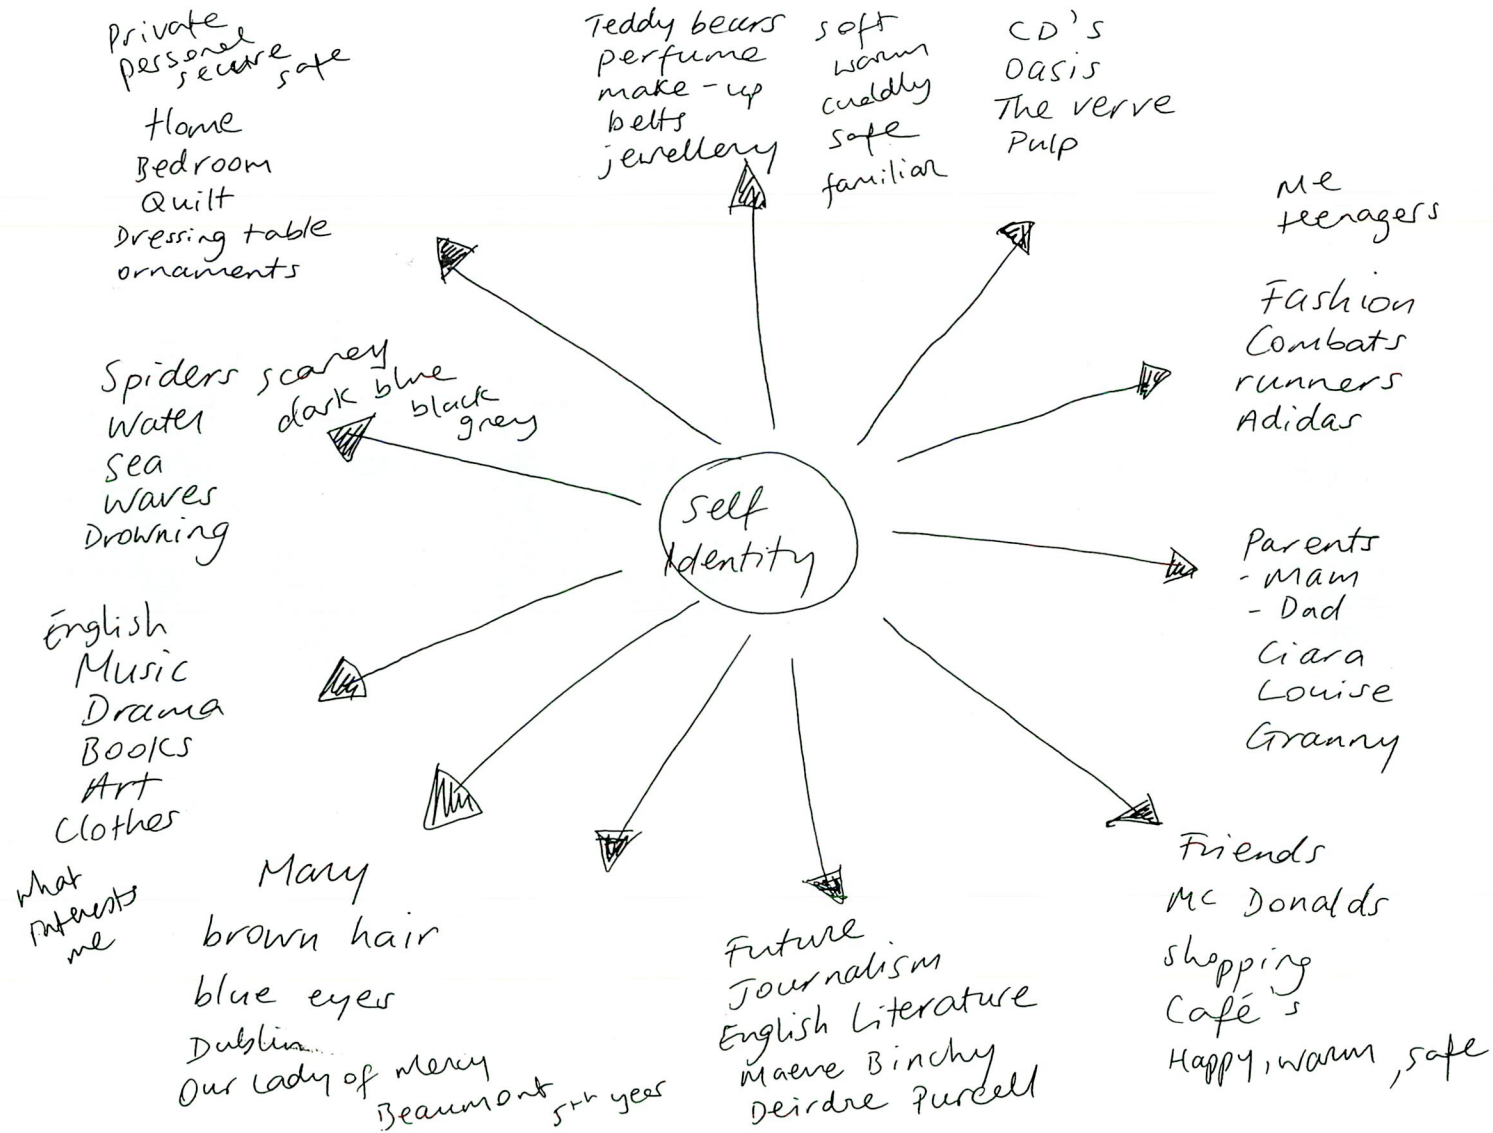 Private
personal
secure safe
Home
Bedroom
Quilt
Dressing table
ornaments
Teddy bears
perfume
make-up
belts
jewellery
soft
warm
cuddly
safe
familiar
CD's
Oasis
The verve
Pulp
me
teenagers
Fashion
Combats
runners
Adidas
Spiders scarey
dark blue
black
grey
Water
Sea
waves
Drowning
Self
Identity
Parents
- Mam
- Dad
Ciara
Louise
Granny
English
Music
Drama
Books
Art
Clothes
what
interests
me
Mary
brown hair
blue eyes
Dublin
Our Lady of Mercy
Beaumont 5th year
Future
Journalism
English Literature
Maeve Binchy
Deirdre Purcell
Friends
Mc Donalds
shopping
Café's
Happy, warm, safe